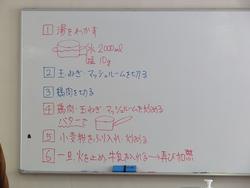 1 湯をわかす
水 2000ml
塩 10g
2 玉ねぎ・マッシュルームを切る
3 鶏肉を切る
4 鶏肉・玉ねぎ・マッシュルームを炒める
バター
5 小麦粉をふり入れ、炒める
6 一旦、火を止め、牛乳を入れる→再び加熱